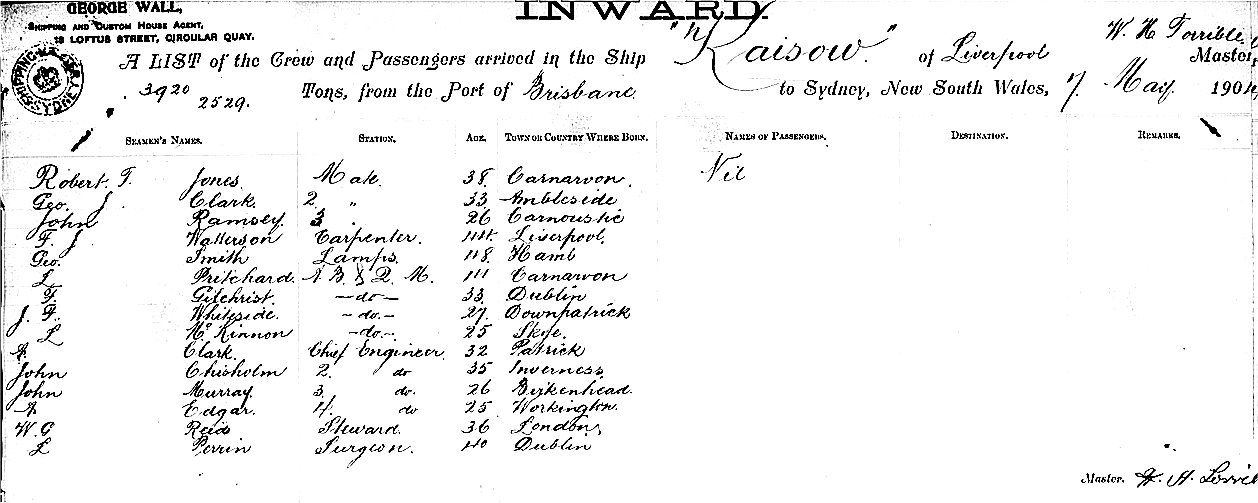 GEORGE WALL,
SHIPPING AND CUSTOM HOUSE AGENT,
LOFTUS STREET, CIRCULAR QUAY.
INWARD.
A LIST of the Crew and Passengers arrived in the Ship "Kaisow" of Liverpool W. H. Master,
3920
2529. Tons, from the Port of Brisbane to Sydney, New South Wales, 7 May 1904
SEAMEN'S NAMES. STATION. AGE. TOWN OR COUNTRY WHERE BORN. NAMES OF PASSENGERS. DESTINATION. REMARKS.
Robert T. Jones. Mate. 38 Carnarvon. Nil
Geo. J. Clark. 2 " 33 Ambleside
John Ramsey. 3 . 26 Carnoustie
F. J. Watterson Carpenter. 44. Liverpool.
Geo. Smith Lamps. 48. Hamb
L Pritchard. A B & Q. M. 41 Carnarvon
F. Gilchrist. -do- 33 Dublin
J. F. Whiteside. -do- 27. Downpatrick
L McKinnon -do- 25 Skye.
A. Clark. Chief Engineer. 32 Patrick
John Chisholm 2. do 35 Inverness
John Murray. 3. do. 26 Birkenhead.
A Edgar. 4. do 25 Workington.
W. G Reid Steward. 36 London,
L Perrin Surgeon. 40 Dublin
Master.